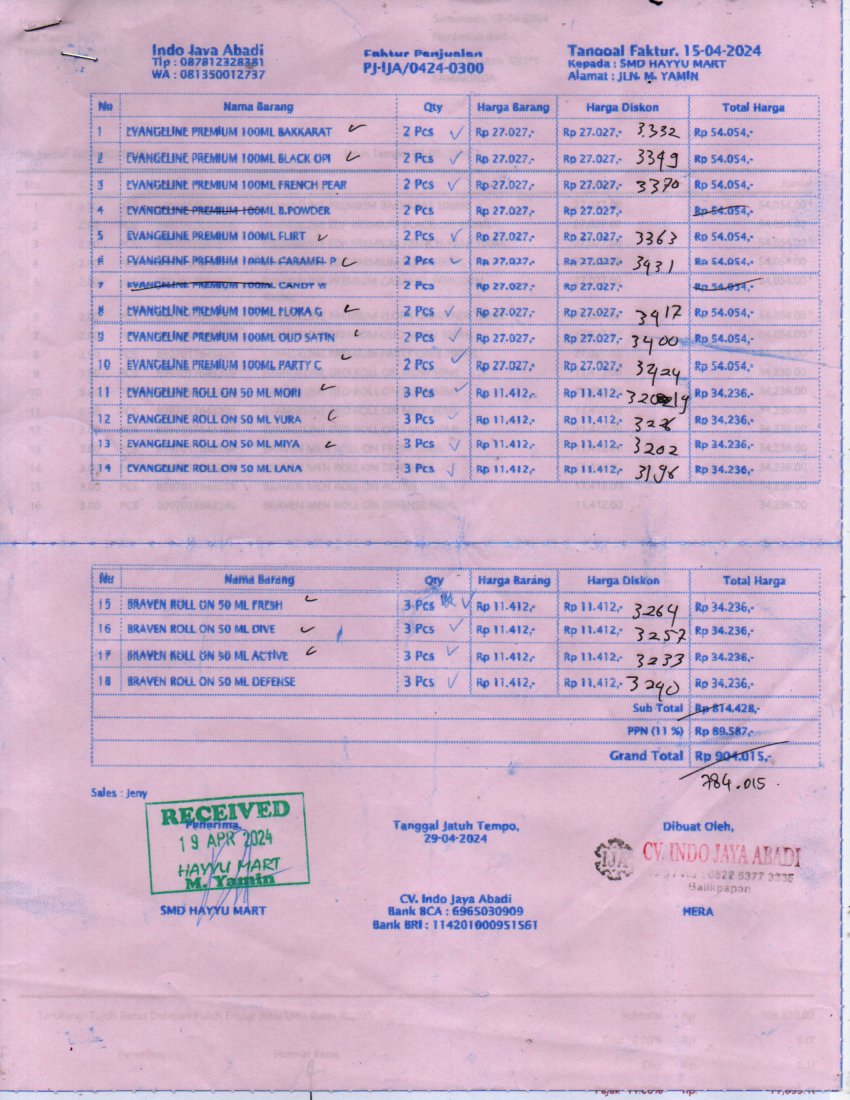 Indo Jaya Abadi
Tlp : 087812328381
WA : 081350012737
Faktur Penjualan
PJ-IJA/0424-0300
Tanggal Faktur. 15-04-2024
Kepada : SMD HAYYU MART
Alamat : JLN. M. YAMIN
No Nama Barang Qty Harga Barang Harga Diskon Total Harga
1 EVANGELINE PREMIUM 100ML BAKKARAT 2 Pcs Rp 27.027,- Rp 27.027,- 3332 Rp 54.054,-
2 EVANGELINE PREMIUM 100ML BLACK OPI 2 Pcs Rp 27.027,- Rp 27.027,- 3349 Rp 54.054,-
3 EVANGELINE PREMIUM 100ML FRENCH PEAR 2 Pcs Rp 27.027,- Rp 27.027,- 3370 Rp 54.054,-
4 EVANGELINE PREMIUM 100ML B.POWDER 2 Pcs Rp 27.027,- Rp 27.027,- Rp 54.054,-
5 EVANGELINE PREMIUM 100ML FLIRT 2 Pcs Rp 27.027,- Rp 27.027,- 3363 Rp 54.054,-
6 EVANGELINE PREMIUM 100ML CARAMEL P 2 Pcs Rp 27.027,- Rp 27.027,- 3431 Rp 54.054,-
7 EVANGELINE PREMIUM 100ML CANDY W 2 Pcs Rp 27.027,- Rp 27.027,- Rp 54.054,-
8 EVANGELINE PREMIUM 100ML FLORA G 2 Pcs Rp 27.027,- Rp 27.027,- 3417 Rp 54.054,-
9 EVANGELINE PREMIUM 100ML OUD SATIN 2 Pcs Rp 27.027,- Rp 27.027,- 3400 Rp 54.054,-
10 EVANGELINE PREMIUM 100ML PARTY C 2 Pcs Rp 27.027,- Rp 27.027,- 3424 Rp 54.054,-
11 EVANGELINE ROLL ON 50 ML MORI 3 Pcs Rp 11.412,- Rp 11.412,- Rp 34.236,-
12 EVANGELINE ROLL ON 50 ML YURA 3 Pcs Rp 11.412,- Rp 11.412,- Rp 34.236,-
13 EVANGELINE ROLL ON 50 ML MIYA 3 Pcs Rp 11.412,- Rp 11.412,- 3202 Rp 34.236,-
14 EVANGELINE ROLL ON 50 ML LANA 3 Pcs Rp 11.412,- Rp 11.412,- 3196 Rp 34.236,-
No Nama Barang Qty Harga Barang Harga Diskon Total Harga
15 BRAVEN ROLL ON 50 ML FRESH 3 Pcs Rp 11.412,- Rp 11.412,- 3264 Rp 34.236,-
16 BRAVEN ROLL ON 50 ML DIVE 3 Pcs Rp 11.412,- Rp 11.412,- 3257 Rp 34.236,-
17 BRAVEN ROLL ON 50 ML ACTIVE 3 Pcs Rp 11.412,- Rp 11.412,- 3233 Rp 34.236,-
18 BRAVEN ROLL ON 50 ML DEFENSE 3 Pcs Rp 11.412,- Rp 11.412,- 3240 Rp 34.236,-
Sub Total Rp 814.428,-
PPN (11 %) Rp 89.587,-
Grand Total Rp 904.015,-
784.015
Sales : Jeny
RECEIVED
Penerima,
19 APR 2024
HAYYU MART
M. Yamin
SMD HAYYU MART
Tanggal Jatuh Tempo,
29-04-2024
CV. Indo Jaya Abadi
Bank BCA : 6965030909
Bank BRI : 114201000951561
Dibuat Oleh,
IJA CV. INDO JAYA ABADI
Balikpapan
HERA